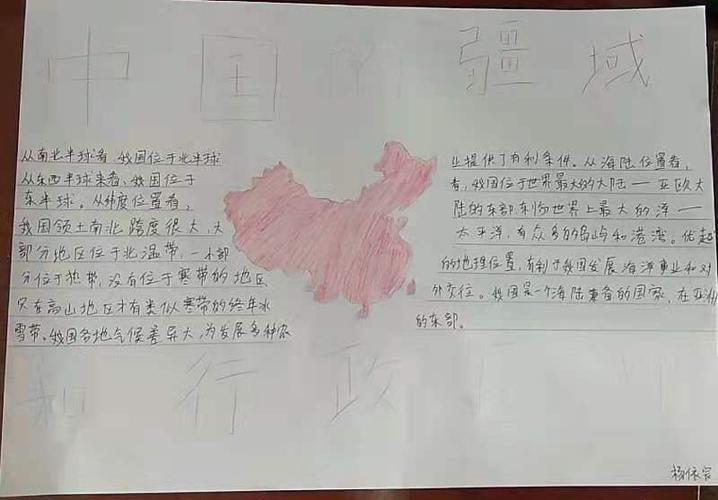 中国的疆域
从南北半球看,我国位于北半球
从东西半球来看,我国位于
东半球。从纬度位置看,
我国领土南北跨度很大,大
部分地区位于北温带,一小部
分位于热带,没有位于寒带的地区
只在高山地区才有类似寒带的终年冰
雪带。我国各地气候差异大,为发展多种农
业提供了有利条件。从海陆位置看,
看,我国位于世界最大的大陆——亚欧大
陆的东部,东临世界上最大的洋——
太平洋,有众多的岛屿和港湾。优越
的地理位置,有利于我国发展海洋事业和对
外交往。我国是一个海陆兼备的国家,在亚洲
的东部。
和行政
杨依宸